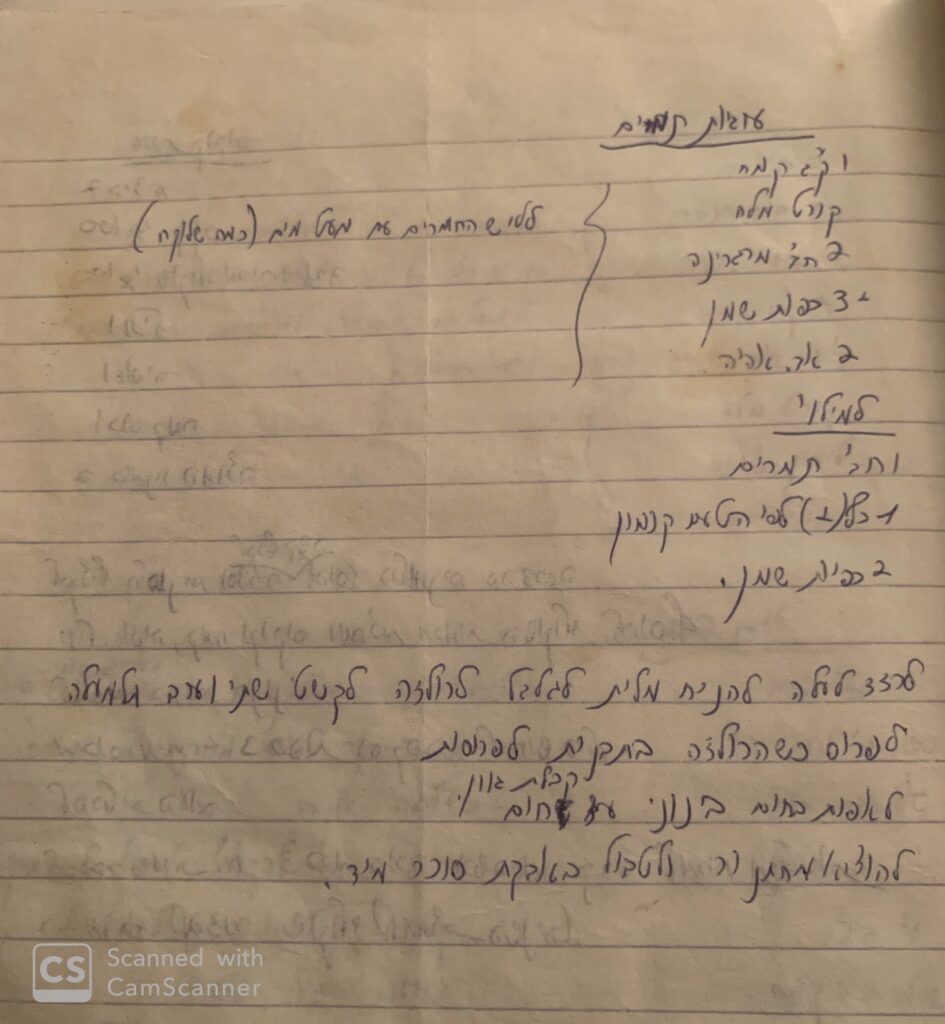 עוגיות תמרים
1 ק"ג קמח
קורט מלח
2 חב' מרגרינה
3 כפות שמן
2 אב. אפיה
ללוש החומרים עם מעט מים (כמה שלוקח)
למילוי
1 חב' תמרים
לפי הטעם קנמון
2 כפית שמן.
לרדד לעלה להניח מלית לגלגל לרולדה לקשט שתי וערב מלמעלה
לפרוס כשהרולדה בתבנית לפרוסות
קבלת גוון
לאפות בחום בינוני עד שחום.
להוציא מהתנור ולטבול באבקת סוכר מיד.
CS Scanned with
CamScanner